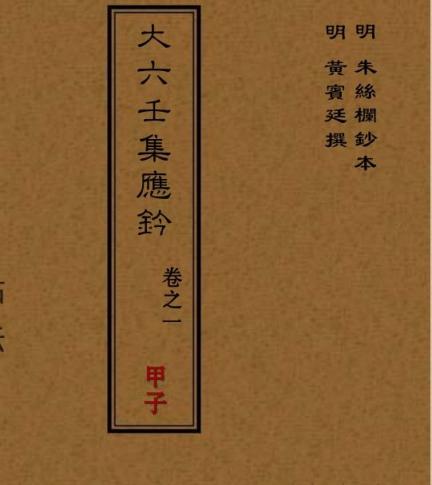 明 朱絲欄鈔本
明 黃賓廷撰
大六壬集應鈐
卷之一
甲子